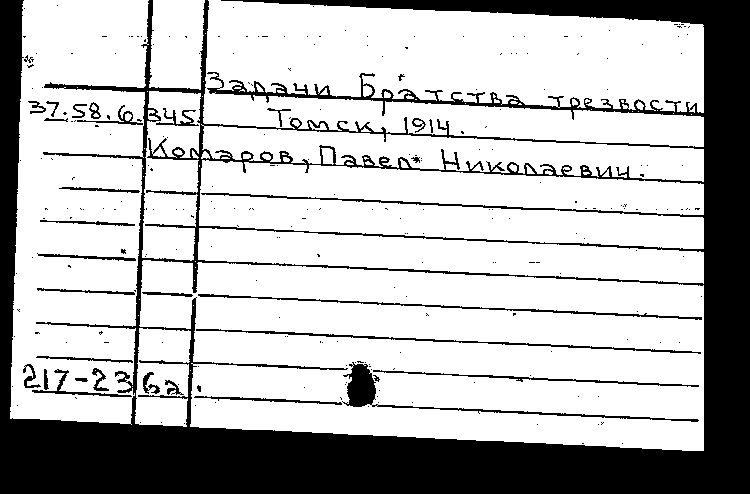 Задачи Братства трезвости
37.58.6.345. Томск, 1914.
Комаров, Павел Николаевич.
217-236а.